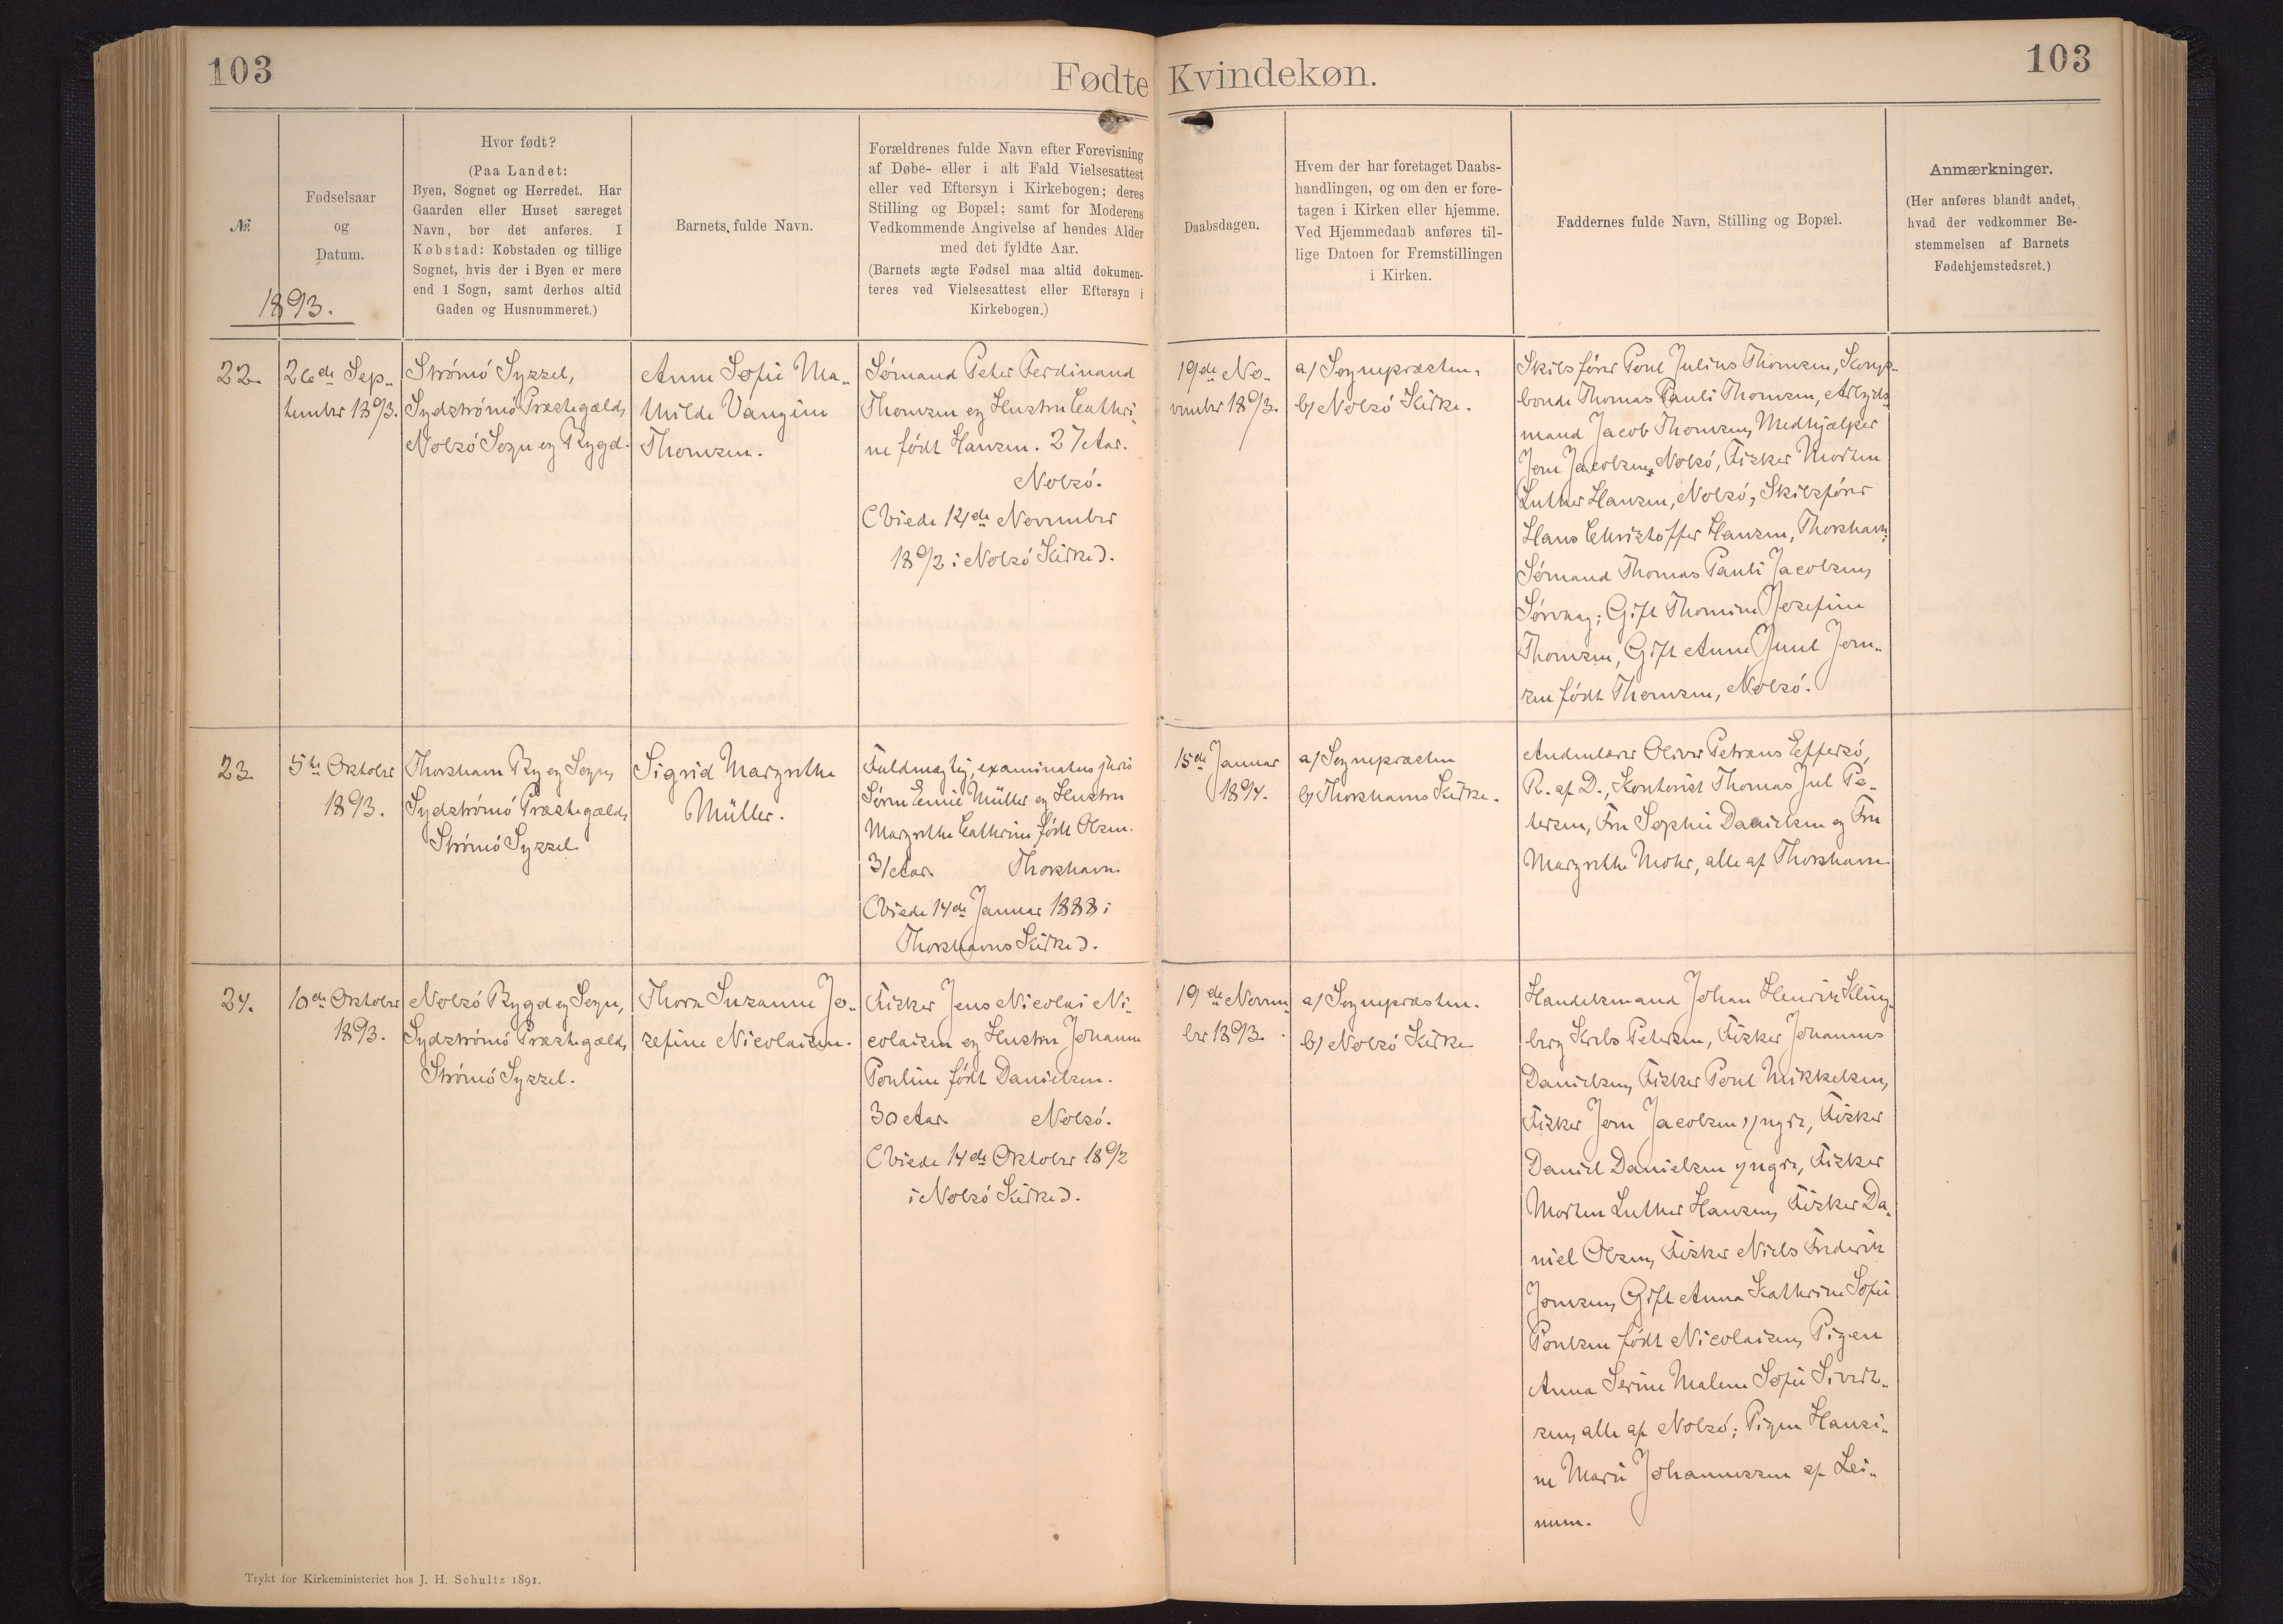 103
Fødte Kvindekøn.
103
№
Fødselsaar
og
Datum.
1893.
Hvor født?
(Paa Landet:
Byen, Sognet og Herredet. Har
Gaarden eller Huset særeget
Navn, bør det anføres. I
Købstad: Købstaden og tillige
Sognet, hvis der i Byen er mere
end 1 Sogn, samt derhos altid
Gaden og Husnummeret.)
Barnets fulde Navn.
Forældrenes fulde Navn efter Forevisning
af Døbe- eller i alt Fald Vielsesattest
eller ved Eftersyn i Kirkebogen; deres
Stilling og Bopæl; samt for Moderens
Vedkommende Angivelse af hendes Alder
med det fyldte Aar.
(Barnets ægte Fødsel maa altid dokumen-
teres ved Vielsesattest eller Eftersyn i
Kirkebogen.)
Daabsdagen.
Hvem der har foretaget Daabs-
handlingen, og om den er fore-
tagen i Kirken eller hjemme.
Ved Hjemmedaab anføres til-
lige Datoen for Fremstillingen
i Kirken.
Faddernes fulde Navn, Stilling og Bopæl.
Anmærkninger.
(Her anføres blandt andet,
hvad der vedkommer Be-
stemmelsen af Barnets
Fødehjemstedsret.)
22.
26de Sep-
tember 1893.
Strømö Syssel,
Sydströmö Præstegæld,
Nolsö Sogn og Bygd.
Anne Sofie Ma-
thilde Vangine
Thomsen.
Sömand Peter Ferdinand
Thomsen og Hustru Cathri-
ne födt Hansen. 27 Aar.
Nolsö.
(Viede 14de November
1892 i Nolsö Kirke).
19de No-
vember 1893.
a) Sognepræsten.
b) Nolsö Kirke.
Skibsförer Poul Julius Thomsen, Konge-
bonde Thomas Pauli Thomsen, Arbejds-
mand Jacob Thomsen, Medhjælper
Joen Jacobsen, Nolsö, Fisker Morten
Luther Hansen, Nolsö, Skibsförer
Hans Christoffer Hansen, Thorshavn;
Sömand Thomas Pauli Jacobsen,
Sörvaag; Gift Thomine Josefine
Thomsen, Gift Anne Juul Joen-
sen födt Thomsen, Nolsö.
23.
5te Oktober
1893.
Thorshavn By og Sogn,
Sydströmö Præstegæld,
Strömö Syssel.
Sigrid Margrethe
Müller.
Fuldmægtig, examinatus juris
Sören Emil Müller og Hustru
Margrethe Cathrine födt Olsen.
31 Aar. Thorshavn.
(Viede 14de Januar 1888 i
Thorshavns Kirke).
15de Januar
1894.
a) Sognepræsten
b) Thorshavns Kirke.
Andenlærer Oliver Petræus Effersö,
R. af D., Kontorist Thomas Jul Pe-
tersen, Fru Sophie Danielsen og Fru
Margrethe Mohr, alle af Thorshavn.
24.
10de Oktober
1893.
Nolsö Bygd og Sogn,
Sydströmö Præstegæld,
Strömö Syssel.
Thora Susanne Jo-
sefine Nicolaisen.
Fisker Jens Nicolai Ni-
colaisen og Hustru Johanne
Pouline födt Danielsen.
30 Aar. Nolsö.
(Viede 14de Oktober 1892
i Nolsö Kirke).
19de Novem-
ber 1893.
a) Sognepræsten.
b) Nolsö Kirke
Handelsmand Johan Henrik Kling-
berg Krebs Petersen, Fisker Johannes
Danielsen, Fisker Poul Mikkelsen,
Fisker Joen Jacobsen yngre, Fisker
Daniel Danielsen yngre, Fisker
Morten Luther Hansen, Fisker Da-
niel Olsen, Fisker Niels Frederik
Joensen, Gift Anna Kathrine Sofie
Poulsen födt Nicolaisen, Pigen
Anna Serine Malene Sofie Sivert-
sen, alle af Nolsö; Pigen Hansi-
ne Marie Johannessen af Lei-
num.
Trykt for Kirkeministeriet hos J. H. Schultz 1891.